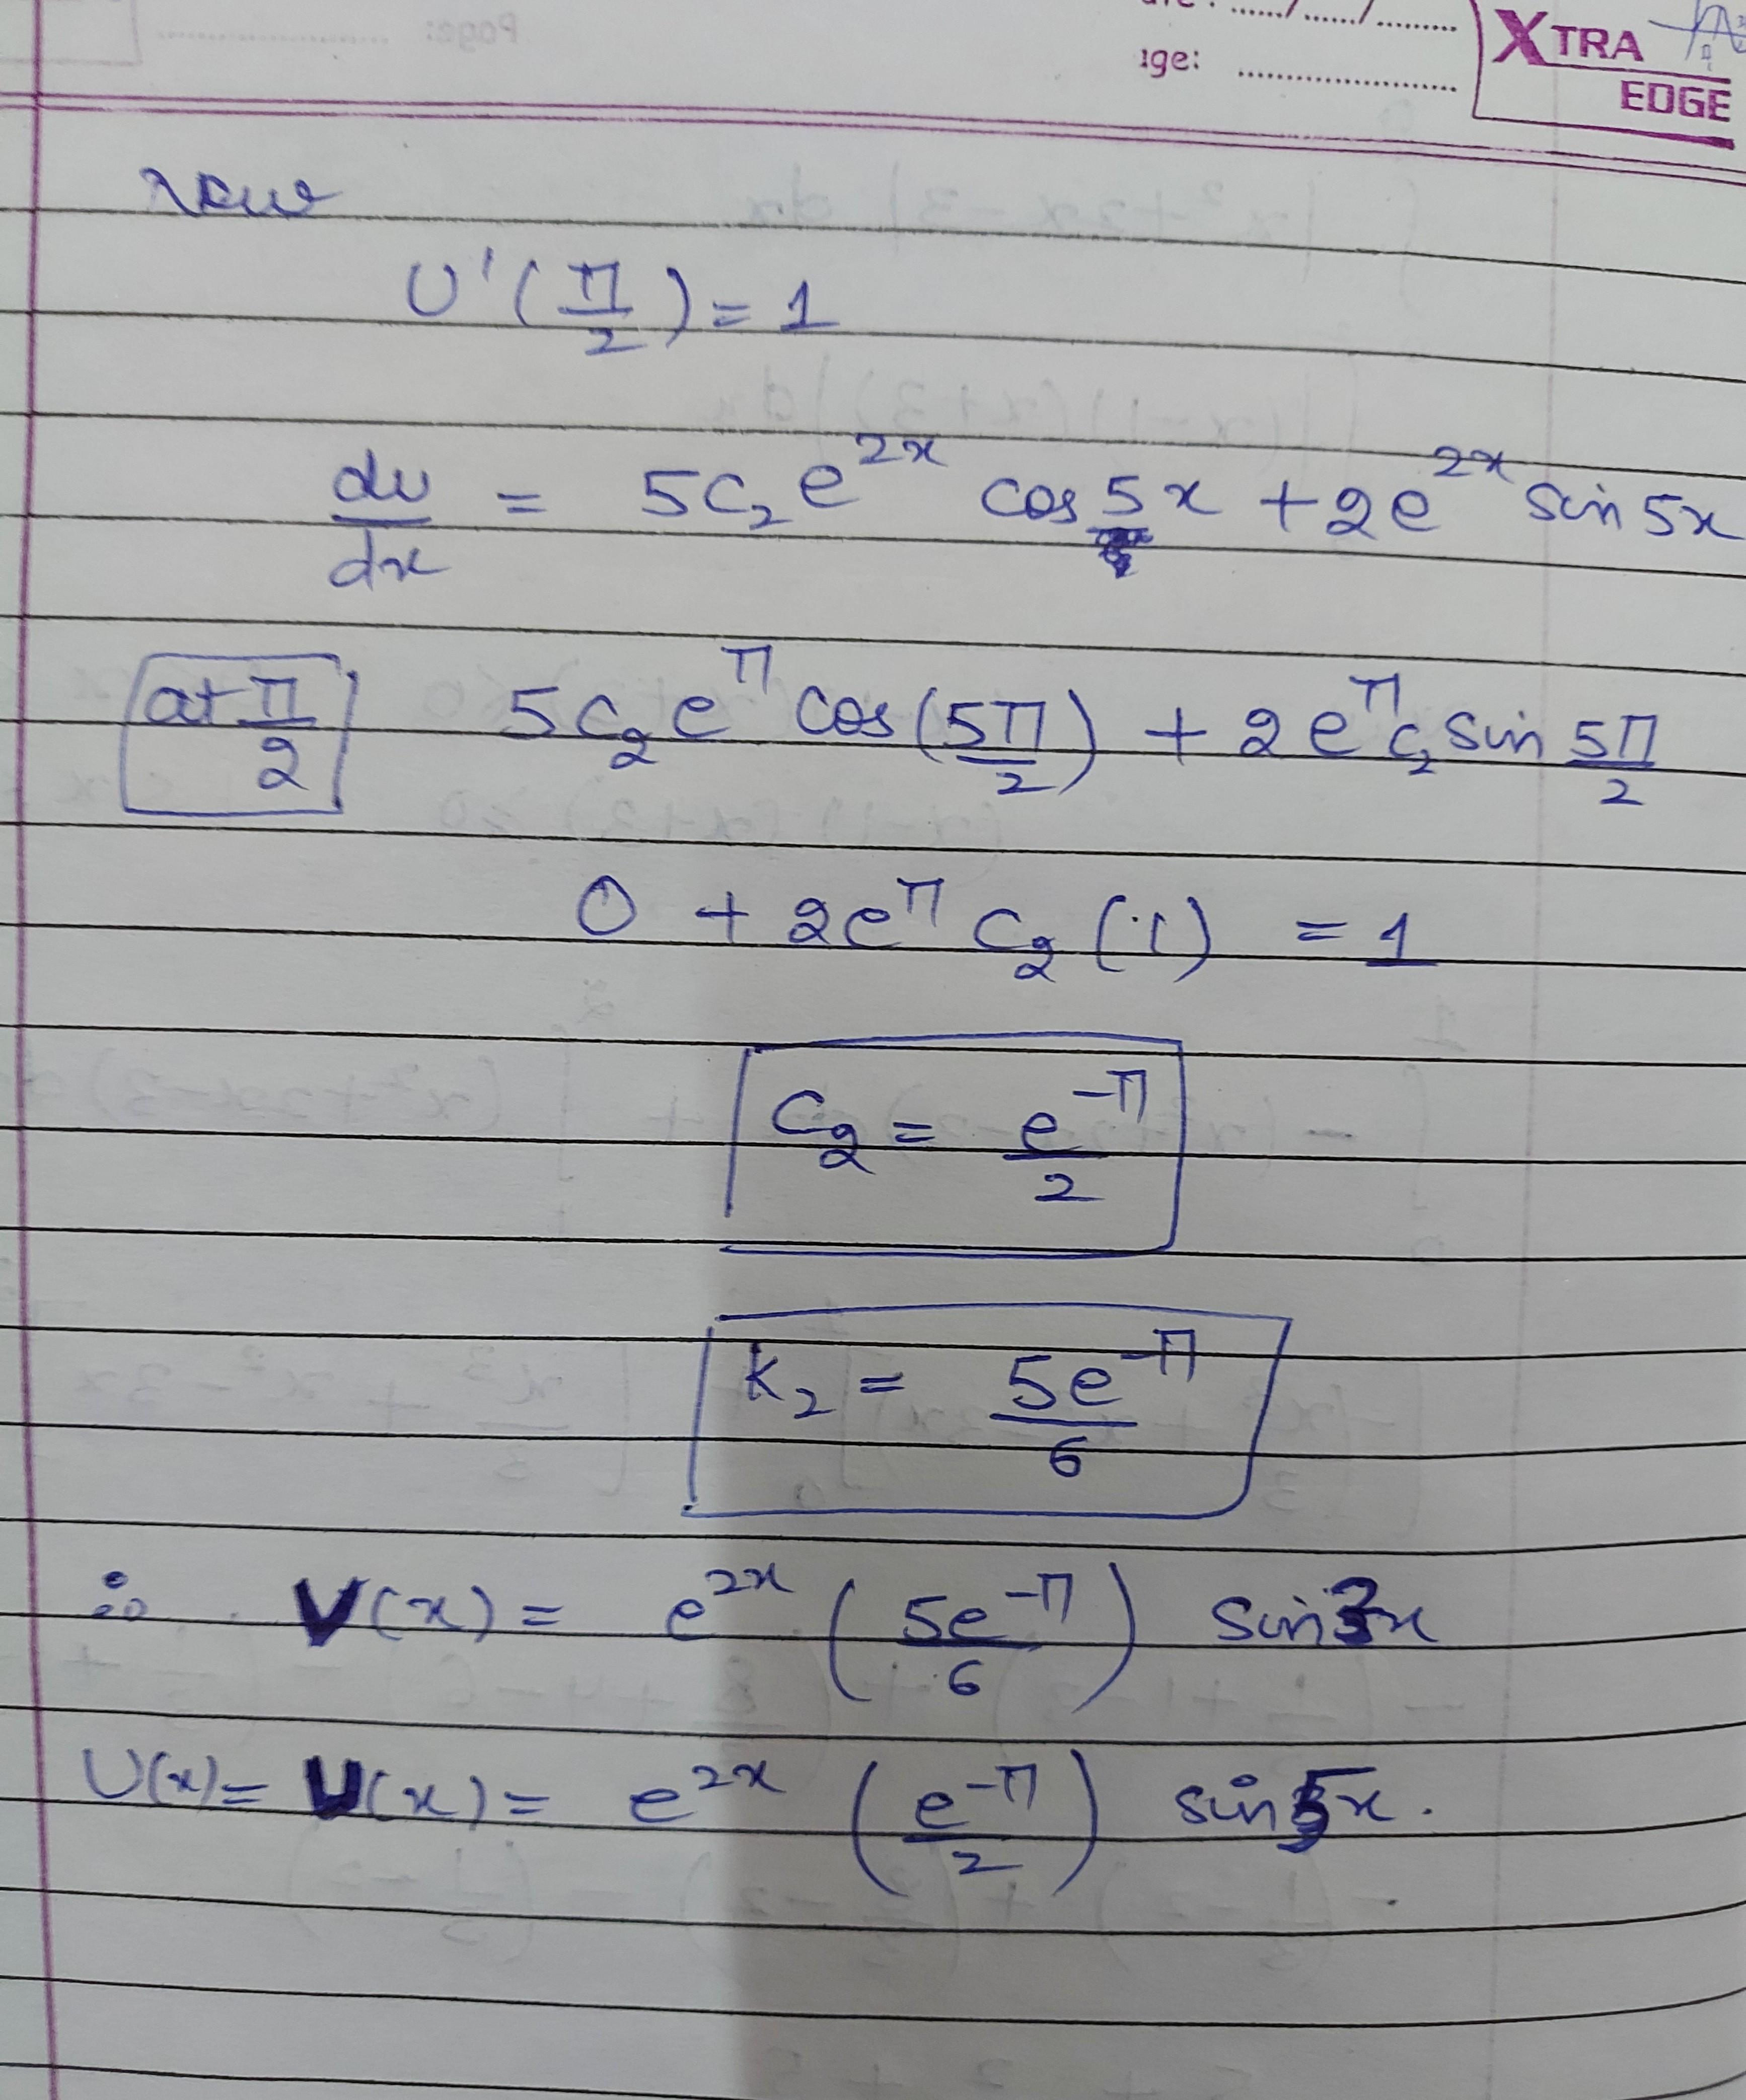 Page:
ige: ..................... XTRA
EDGE
Now
U'(π/2) = 1
du/dx = 5c₂e^2x cos 5x + 2e^2x sin 5x
at π/2 5c₂e^π cos(5π/2) + 2e^π c₂ sin 5π/2
0 + 2e^π c₂ (1) = 1
c₂ = e^-π/2
k₂ = 5e^-π/6
∴ V(x) = e^2x (5e^-π/6) sin3x
U(x) = U(x) = e^2x (e^-π/2) sin5x.